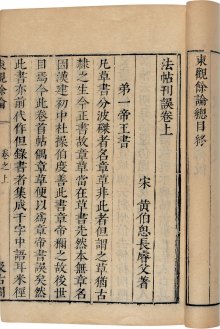 東觀餘論總目終
法帖刊誤卷上
宋 黃伯思長睿父著
第一帝王書
凡草書分波磔者名章草非此者但謂之草猶古
隸之生今正書故章草當在草書先然本無章名
因漢建初中杜操伯度善此書章帝稱之故後世
目焉今此卷首帖偶章草便以爲章帝書誤矣然
此書亦前代作但錄書者集成千字中語耳米徑
東觀餘論 卷之上